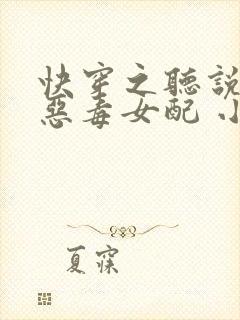 快穿之聽說
惡毒女配 小
夏寐